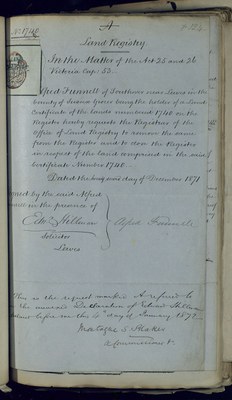 A
No 1740
Land Registry
In the Matter of the Act 25 and 26
Victoria Cap: 53.
Alfred Funnell of Southover near Lewes in the
County of Sussex Grocer being the holder of a Land
Certificate of the Lands numbered 1740 on the
Register hereby requests the Registrar of the
Office of Land Registry to remove the same
from the Register and to close the Register
in respect of the land comprised in the said
Certificate Number 1740.
Dated the day of December 1871
Signed by the said Alfred
in the presence of
Edw Hillman
Solicitor
Lewes
Alfred Funnell
This is the request marked A referred to
in the annexed Declaration of Edward Hillman
before me this day of January 1872
Montague S Blaker
A Commissioner &c.